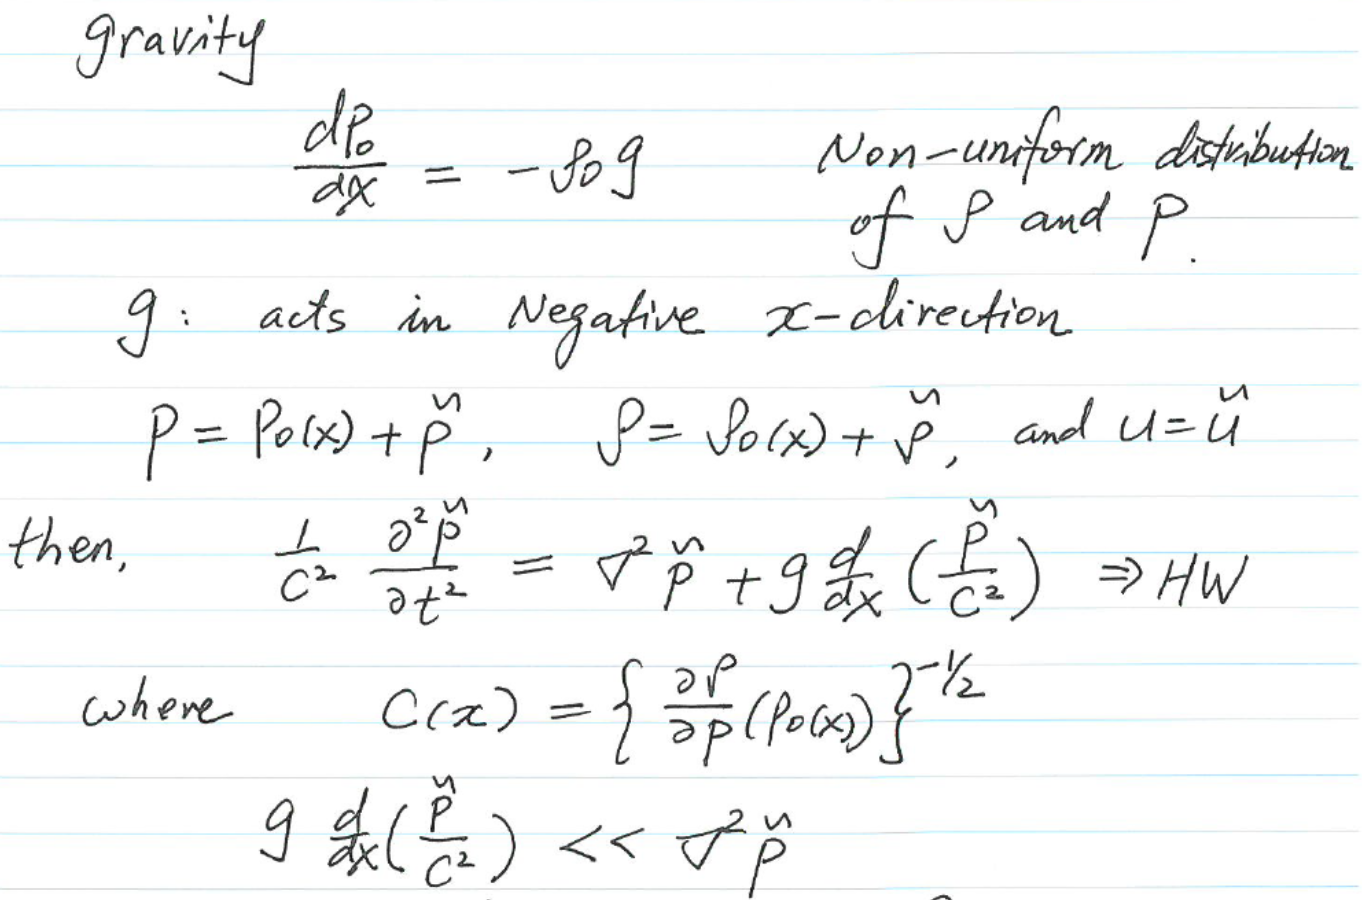 gravity
dP₀/dx = -ρ₀g Non-uniform distribution
of ρ and P.
g: acts in Negative x-direction
P = P₀(x) + p̃, ρ = ρ₀(x) + ρ̃, and u = ũ
then, 1/C² ∂²p̃/∂t² = ∇²p̃ + g d/dx (p̃/C²) ⇒ HW
where C(x) = {∂ρ/∂p (ρ₀(x))}^(-1/2)
g d/dx (p̃/C²) << ∇²p̃